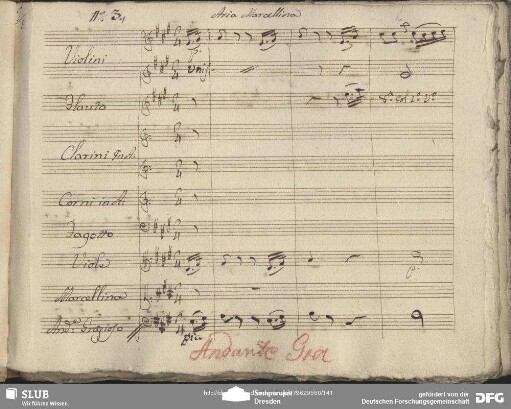 No. 3.
Aria Marcellina
Violini
Unis:
Flauto
8va col 1o Vo
Clarini
Corni in A.
Fagotto
Viole
p.
Marcellina
And: Grazioso
pia
Andante Gra
SLUB
Wir führen Wissen.
Dresden
gefördert von der
Deutschen Forschungsgemeinschaft
DFG